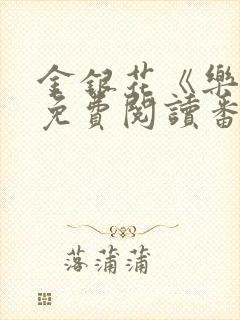 金銀花《樂
免費閱讀番
落蒲蒲